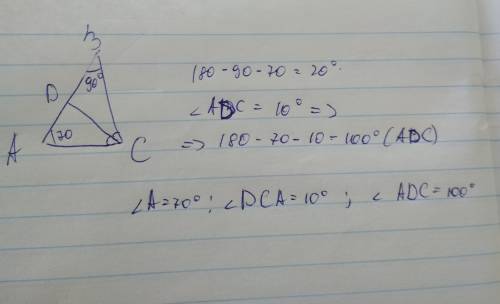 B
90°
D
70
A
C
180-90-70=20°.
∠ADC = 10° =>
=> 180-70-10-100° (ADC)
∠A=70° ; ∠DCA=10° ; ∠ ADC=100°